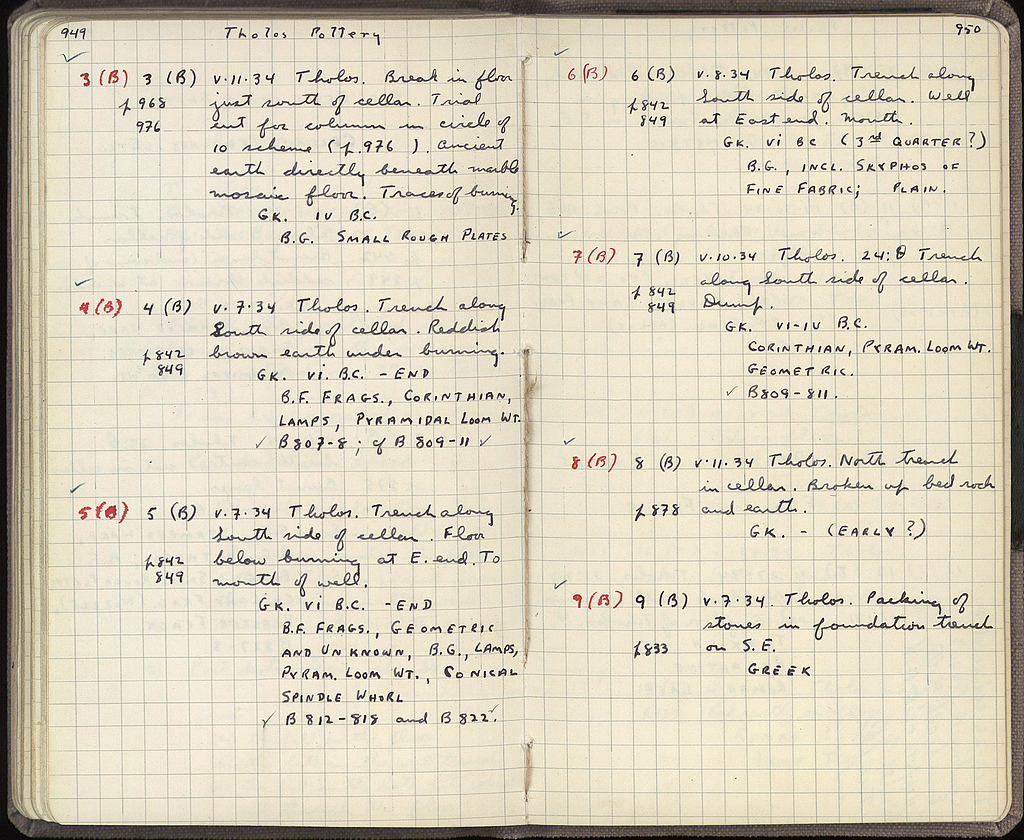 949 Tholos Pottery
3 (B) 3 (B) V.11.34 Tholos. Break in floor
p 968 just south of cellar. Trial
976 cut for column in circle of
10 scheme (p.976 ). Ancient
earth directly beneath marble
mosaic floor. Traces of burning.
GK. IV B.C.
B.G. SMALL ROUGH PLATES
4 (B) 4 (B) V.7.34 Tholos. Trench along
South side of cellar. Reddish
p 842 brown earth under burning.
849 GK. VI. B.C. - END
B.F. FRAGS., CORINTHIAN,
LAMPS, PYRAMIDAL LOOM WT.
✓ B 807-8 ; cf B 809-11 ✓
5 (B) 5 (B) V.7.34 Tholos. Trench along
South side of cellar. Floor
p 842 below burning at E. end. To
849 mouth of well.
GK. VI B.C. - END
B.F. FRAGS., GEOMETRIC
AND UNKNOWN, B.G., LAMPS,
PYRAM. LOOM WT., CONICAL
SPINDLE WHORL
✓ B 812-818 and B 822 ✓.
950
6 (B) 6 (B) V.8.34 Tholos. Trench along
p 842 South side of cellar. Well
849 at East end. Mouth.
GK. VI BC (3rd QUARTER?)
B.G., INCL. SKYPHOS OF
FINE FABRIC; PLAIN.
7 (B) 7 (B) V.10.34 Tholos. 24:Θ Trench
along South side of cellar.
p 842 Dump.
849 GK. VI-IV B.C.
CORINTHIAN, PYRAM. LOOM WT.
GEOMETRIC.
✓ B809-811.
8 (B) 8 (B) V.11.34 Tholos. North trench
in cellar. Broken up bed rock
p 878 and earth.
GK. - (EARLY?)
9 (B) 9 (B) V.7.34. Tholos. Packing of
stones in foundation trench
p 833 on S.E.
GREEK